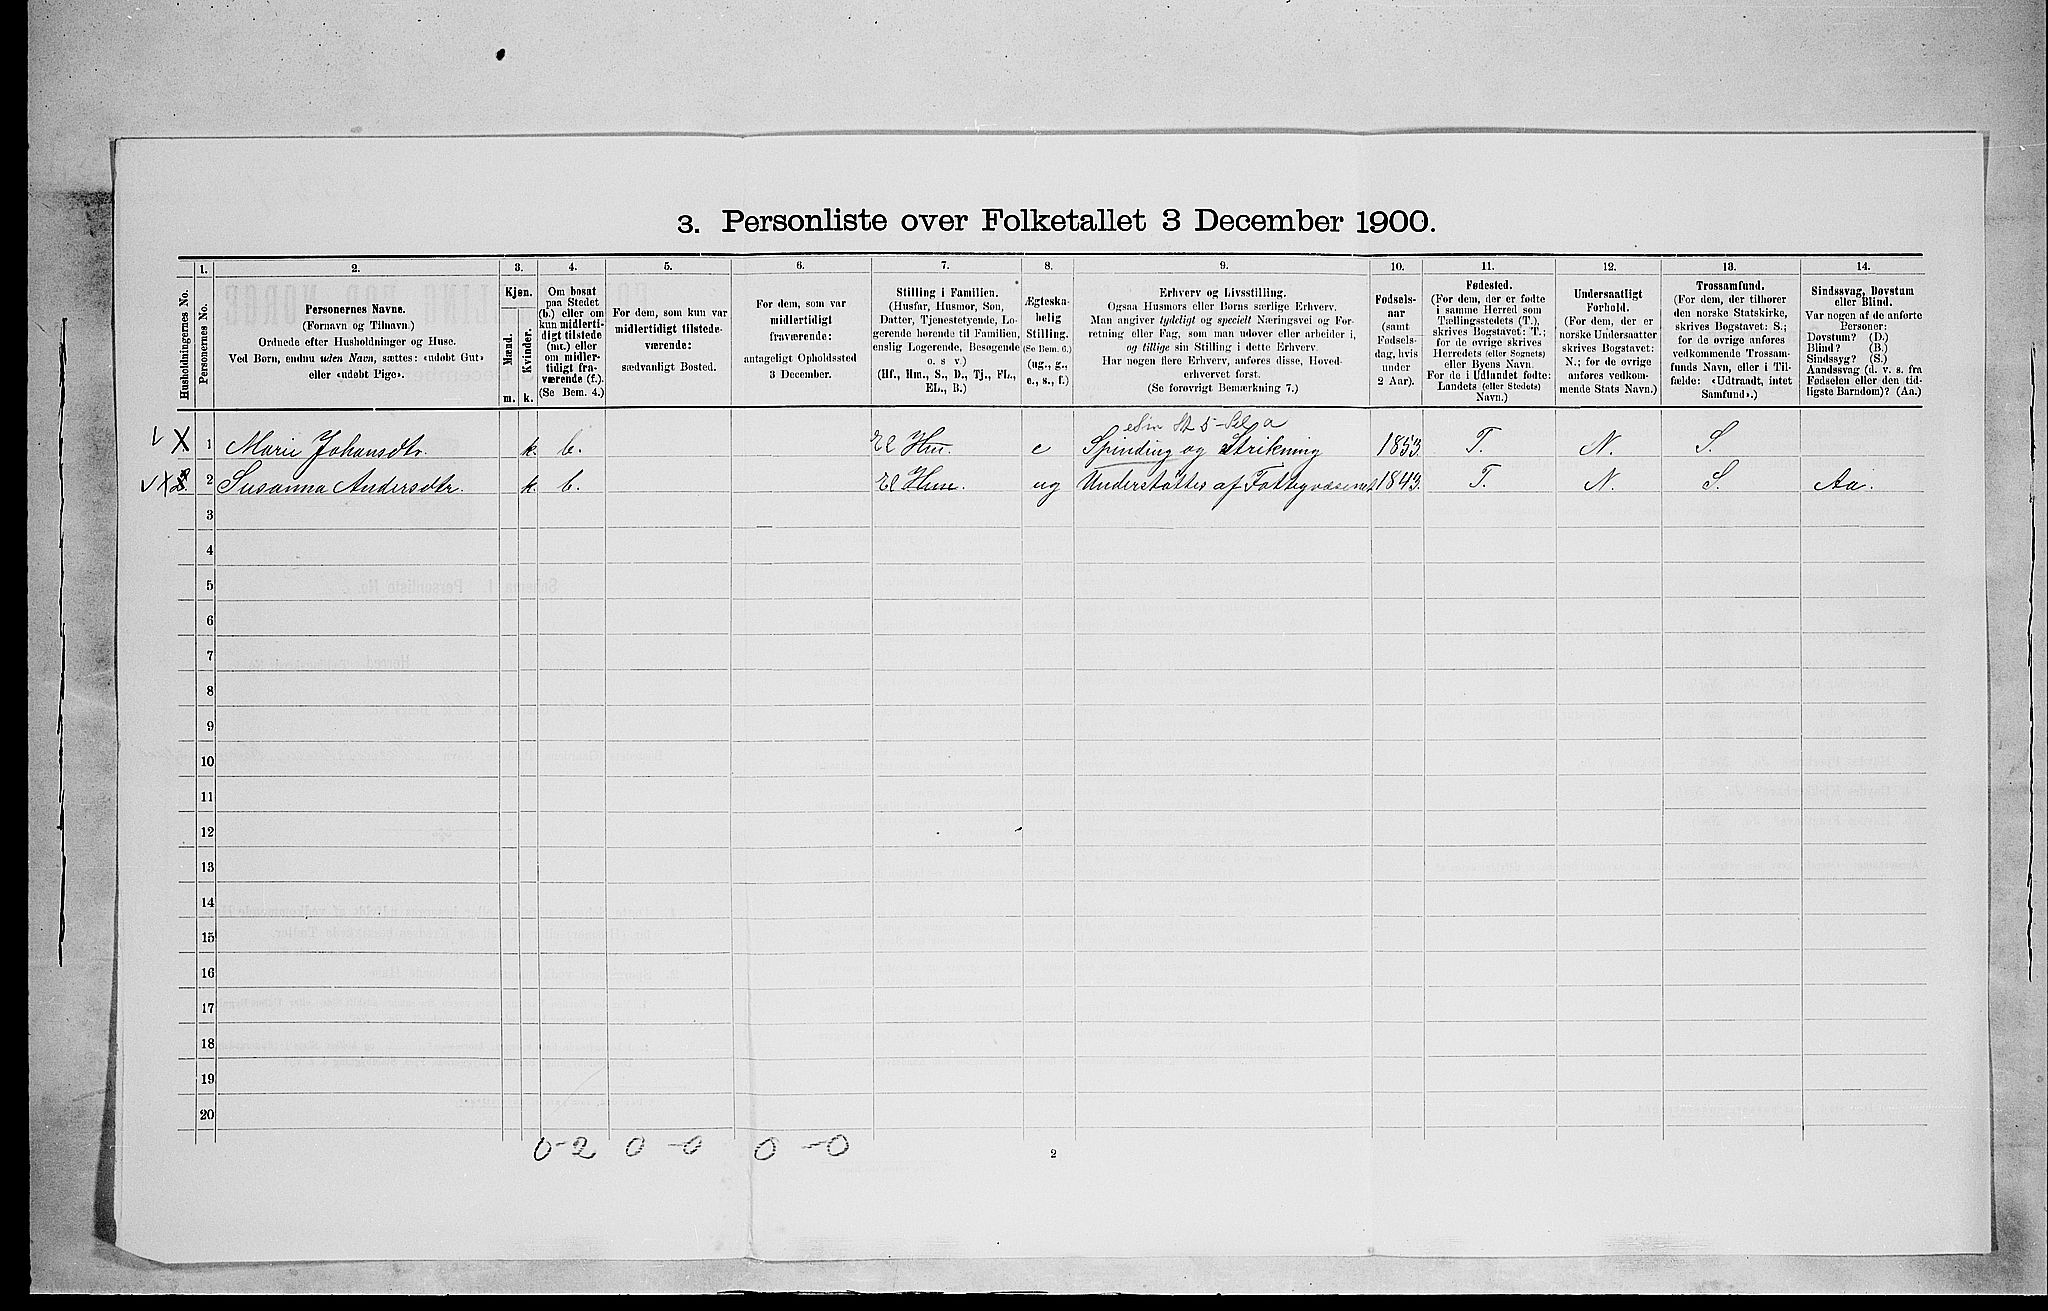 3. Personliste over Folketallet 3 December 1900.
Husholdningernes No.
1.
Personernes No.
2.
Personernes Navne.
(Fornavn og Tilnavn.)
Ordnede efter Husholdninger og Huse.
Ved Børn, endnu uden Navn, sættes: «udøbt Gut»
eller «udøbt Pige».
3.
Kjøn.
Mænd.
Kvinder.
m. k.
4.
Om bosat
paa Stedet
(b.) eller om
kun midlerti-
digt tilstede
(mt.) eller
om midler-
tidigt fra-
værende (f.).
(Se Bem. 4.)
5.
For dem, som kun var
midlertidigt tilstede-
værende:
sædvanligt Bosted.
6.
For dem, som var
midlertidigt
fraværende:
antageligt Opholdssted
3 December.
7.
Stilling i Familien.
(Husfar, Husmor, Søn,
Datter, Tjenestetyende, Lo-
gerende hørende til Familien,
enslig Logerende, Besøgende
o. s v.)
(Hf., Hm., S., D., Tj., FL.,
EL., B.)
8.
Ægteska-
belig
Stilling.
(Se Bem. 6.)
(ug., g.,
e., s., f.)
9.
Erhverv og Livsstilling.
Ogsaa Husmors eller Børns særlige Erhverv.
Man angiver tydeligt og specielt Næringsvei og For-
retning eller Fag, som man udøver eller arbeider i,
og tillige sin Stilling i dette Erhverv.
Har nogen flere Erhverv, anføres disse, Hoved-
erhvervet først.
(Se forøvrigt Bemærkning 7.)
10.
Fødsels-
aar
(samt
Fødsels-
dag, hvis
under
2 Aar).
11.
Fødested.
(For dem, der er fødte
i samme Herred som
Tællingsstedets (T.),
skrives Bogstavet: T.;
for de øvrige skrives
Herredets (eller Sognets)
eller Byens Navn.
For de i Udlandet fødte:
Landets (eller Stedets)
Navn.)
12.
Undersaatligt
Forhold.
(For dem, der er
norske Undersaatter
skrives Bogstavet:
N.; for de øvrige
anføres vedkom-
mende Stats Navn.)
13.
Trossamfund.
(For dem, der tilhører
den norske Statskirke,
skrives Bogstavet: S.;
for de øvrige anføres
vedkommende Trossam-
funds Navn, eller i Til-
fælde: «Udtraadt, intet
Samfund».)
14.
Sindssvag, Døvstum
eller Blind.
Var nogen af de anførte
Personer:
Døvstum? (D.)
Blind? (B.)
Sindssyg? (S.)
Aandssvag (d. v. s. fra
Fødselen eller den tid-
ligste Barndom)? (Aa.)
X 1 Marie Johansdtr. k. b. El Hm. e Spinding og Strikning 1853. T. N. S.
X 2 Susanna Andersdtr. k. b. El Hm. ug Understøttes af Fattigvæsenet 1843. T. N. S. Aa.
3
4
5
6
7
8
9
10
11
12
13
14
15
16
17
18
19
20
0-2 0-0 0-0
2